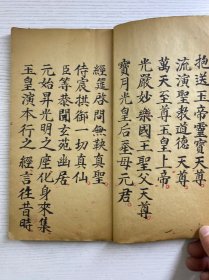 抱送玉帝靈寶天尊
流演聖教道德天尊
萬天至尊玉皇上帝
光嚴妙樂國王聖父天尊
寶月光皇后聖母元君
經筵啓問無鞅真聖
侍宸拱御一切真仙
臣等恭聞玄苑幽居
元始昇光明之座化身來集
玉皇演本行之經言往昔時